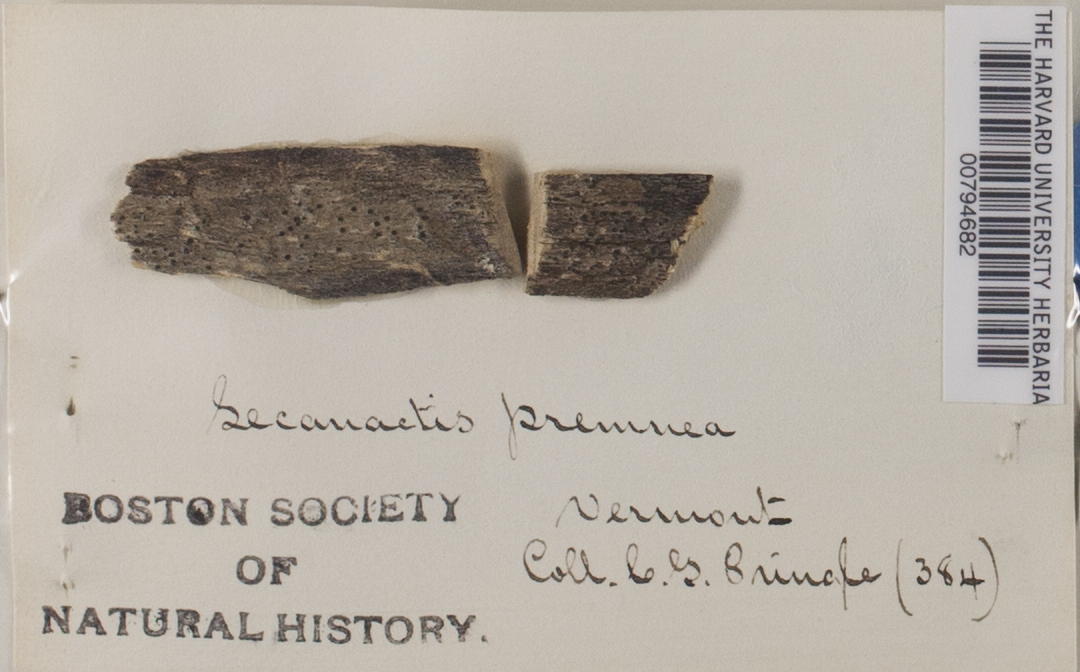 THE HARVARD UNIVERSITY HERBARIA
00794682
Lecanactis premnea
Vermont
Coll. C. G. Pringle (384)
BOSTON SOCIETY
OF
NATURAL HISTORY.